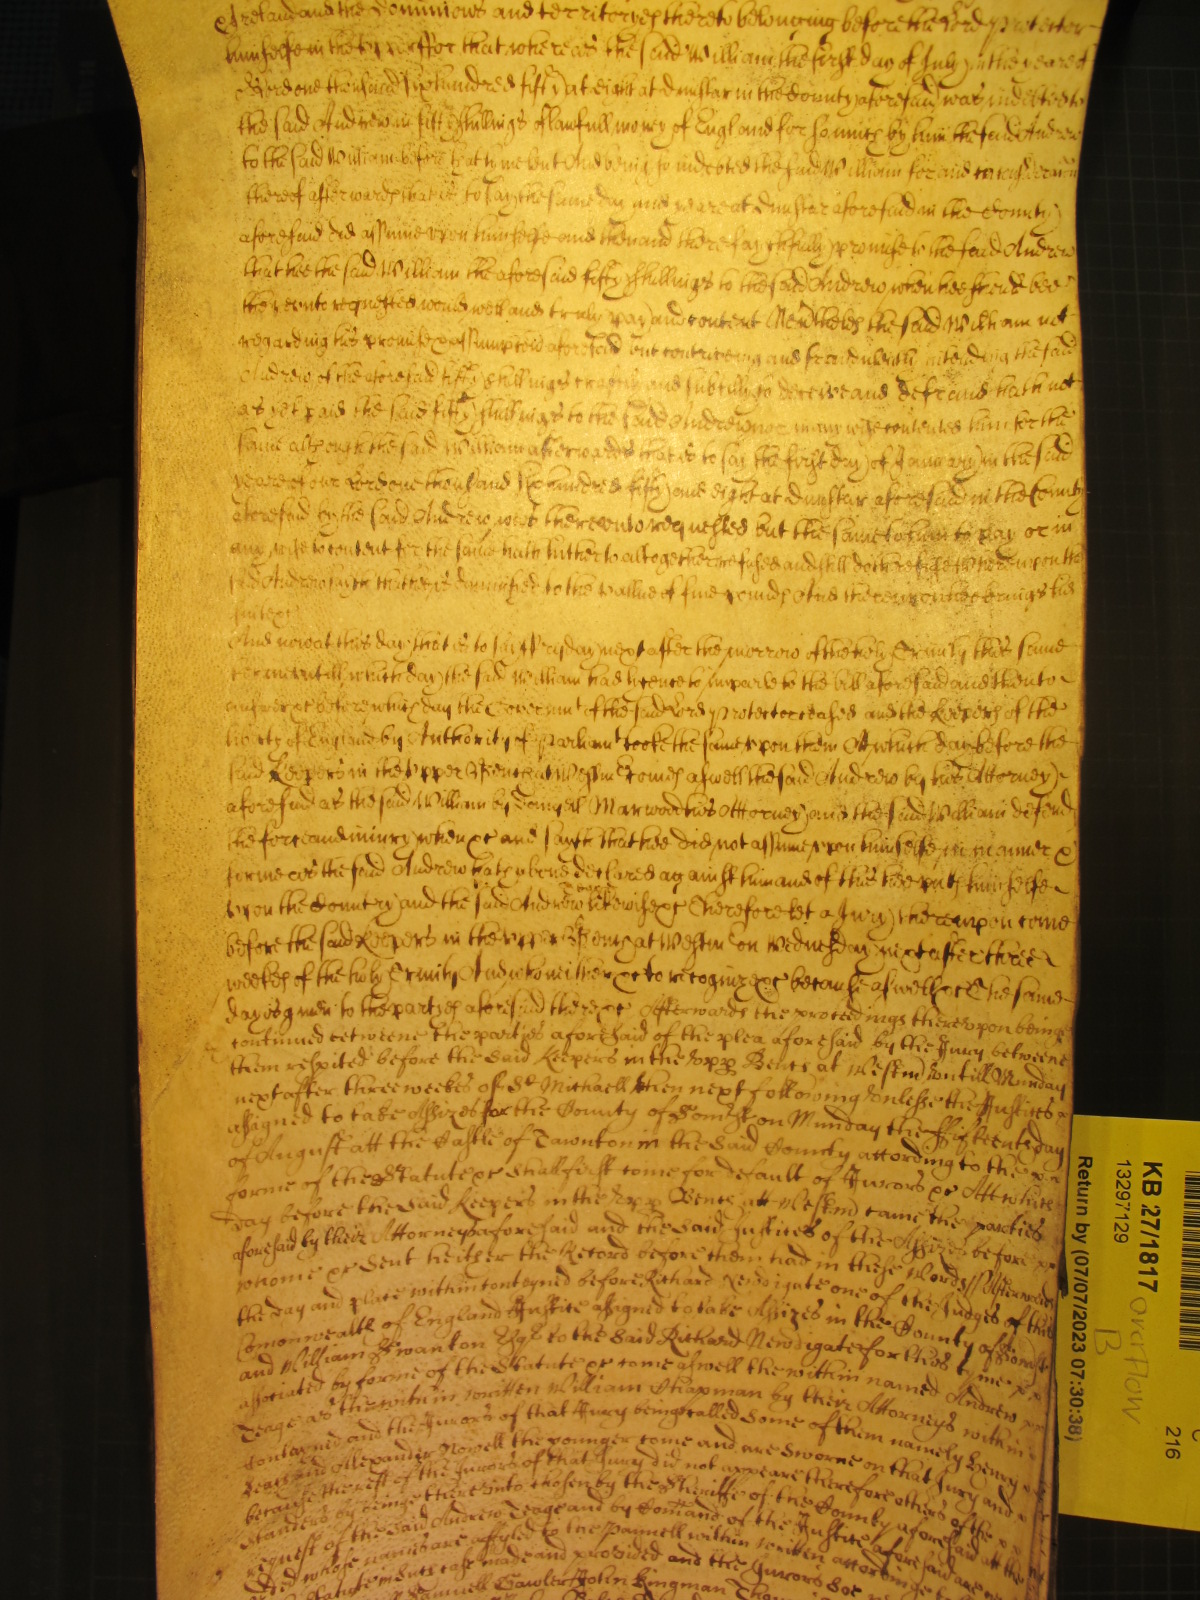 Ireland and the Dominions and territoryes thereto belonging before the Lord Protector
himselfe in the upper for that whereas the said William the first day of July in the yeare of
Lord one thousand six hundred fifty at eight at Dunstar in the County aforesaid was indebted to
the said Andrew in fifty shillings of lawfull money of England for so much by him the said Andrew
to the said William before that tyme And being so indebted the said William for and in consideracion
thereof afterwards that is to say the same day and yeare at Dunstar aforesaid in the County
aforesaid did assume upon himselfe and then and there faythfully promise to the said Andrew
that hee the said William the aforesaid fifty shillings to the said Andrew when hee should bee
thereunto requested would well and truly pay and content Neverthelesse the said William not
regarding his promise & assumption aforesaid but contriveing and fraudulently intending the said
Andrew of the aforesaid fifty shillings craftily and subtilly to deceive and defraud hath not
as yet paid the said fifty shillings to the said Andrew nor in any wise contented him for the
same although the said William afterwards that is to say the first day of January in the said
yeare of our Lord one thousand six hundred fifty and eight at Dunstar aforesaid in the County
aforesaid by the said Andrew was thereunto requested but the same to him to pay or in
any wise to content for the same hath hitherto altogether refused and still doth refuse Whereupon the
said Andrew sayth that hee is damnifyed to the vallue of five pounds And thereupon hee brings his
suite &c
And now at this day that is to say Fryday next after the morrow of the holy Trinity this same
terme untill which day the said William had licence to imparle to the bill aforesaid and then to
answer &c before which day the Governmt of the said Lord Protector ceased and the Keepers of the
liberty of England by Authority of Parliamt tooke the same upon them At which day before the
said Keepers in the Upper Bench at Westmr comes aswell the said Andrew by his Attorney
aforesaid as the said William by Marwood his Attorney and the said William defends
the force and injury when &c and sayth that hee did not assume upon himselfe in manner &
forme as the said Andrew hath above declared against him and of this hee puts himselfe
upon the Country and the said Andrew likewise &c Therefore let a Jury thereupon come
before the said Keepers in the upper Bench at Westmr on Wednesday next after three
weekes of the holy Trinity And who neither &c to recognize &c because aswell &c The same
day is given to the partyes aforesaid there &c Afterwards the proceedings thereupon being
continued betweene the partyes aforesaid of the plea aforesaid by the Jury betweene
them respited before the said Keepers in the Upp Bench at Westmr untill Munday
next after three weekes of St Michaell then next following Unlesse the Justices
assigned to take Assizes for the County of Somst on Munday the fifteenth day
of August att the Castle of Tawnton in the said County according to the
forme of the Statute &c shall first come for default of Jurors &c Att which
day before the said Keepers in the Upp Bench att Westmr came the partyes
aforesaid by their Attorneys aforesaid and the said Justices of the Assizes before
whome &c sent hether the Record before them had in these Words Afterwards
the day and place within contayned before Richard Newdigate one of the Judges of this
Comonwealth of England Justice assigned to take Assizes in the County of Somst
and William Swanton Esqr to the said Richard Newdigate for this tyme
associated by forme of the Statute &c come aswell the within named Andrew
Teage as the within written William Chapman by their Attorneys within
contayned and the Jurors of that Jury being called some of them namely Henry
and Allexander Nowell the younger come and are sworne on that Jury and
because the rest of the Jurors of that Jury did not appeare therefore others of the
standers by being thereunto chosen by the Sheriffe of the County aforesaid att the
request of the said Andrew Teage and by Comand of the Justice aforesaid are
whose names are affyled to the Pannell within written according to
Statute in this case made and provided and the Jurors soe
Samuell Gawler John Kingman
KB 27/1817
13297129
overflow
B
216
Return by (07/07/2023 07:30:38)